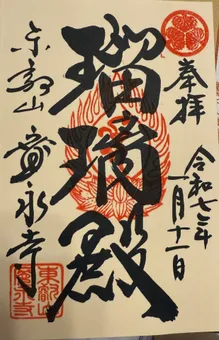 奉拝
令和七年
一月十一日
瑠璃殿
東叡山
寛永寺
東叡山
寛永寺